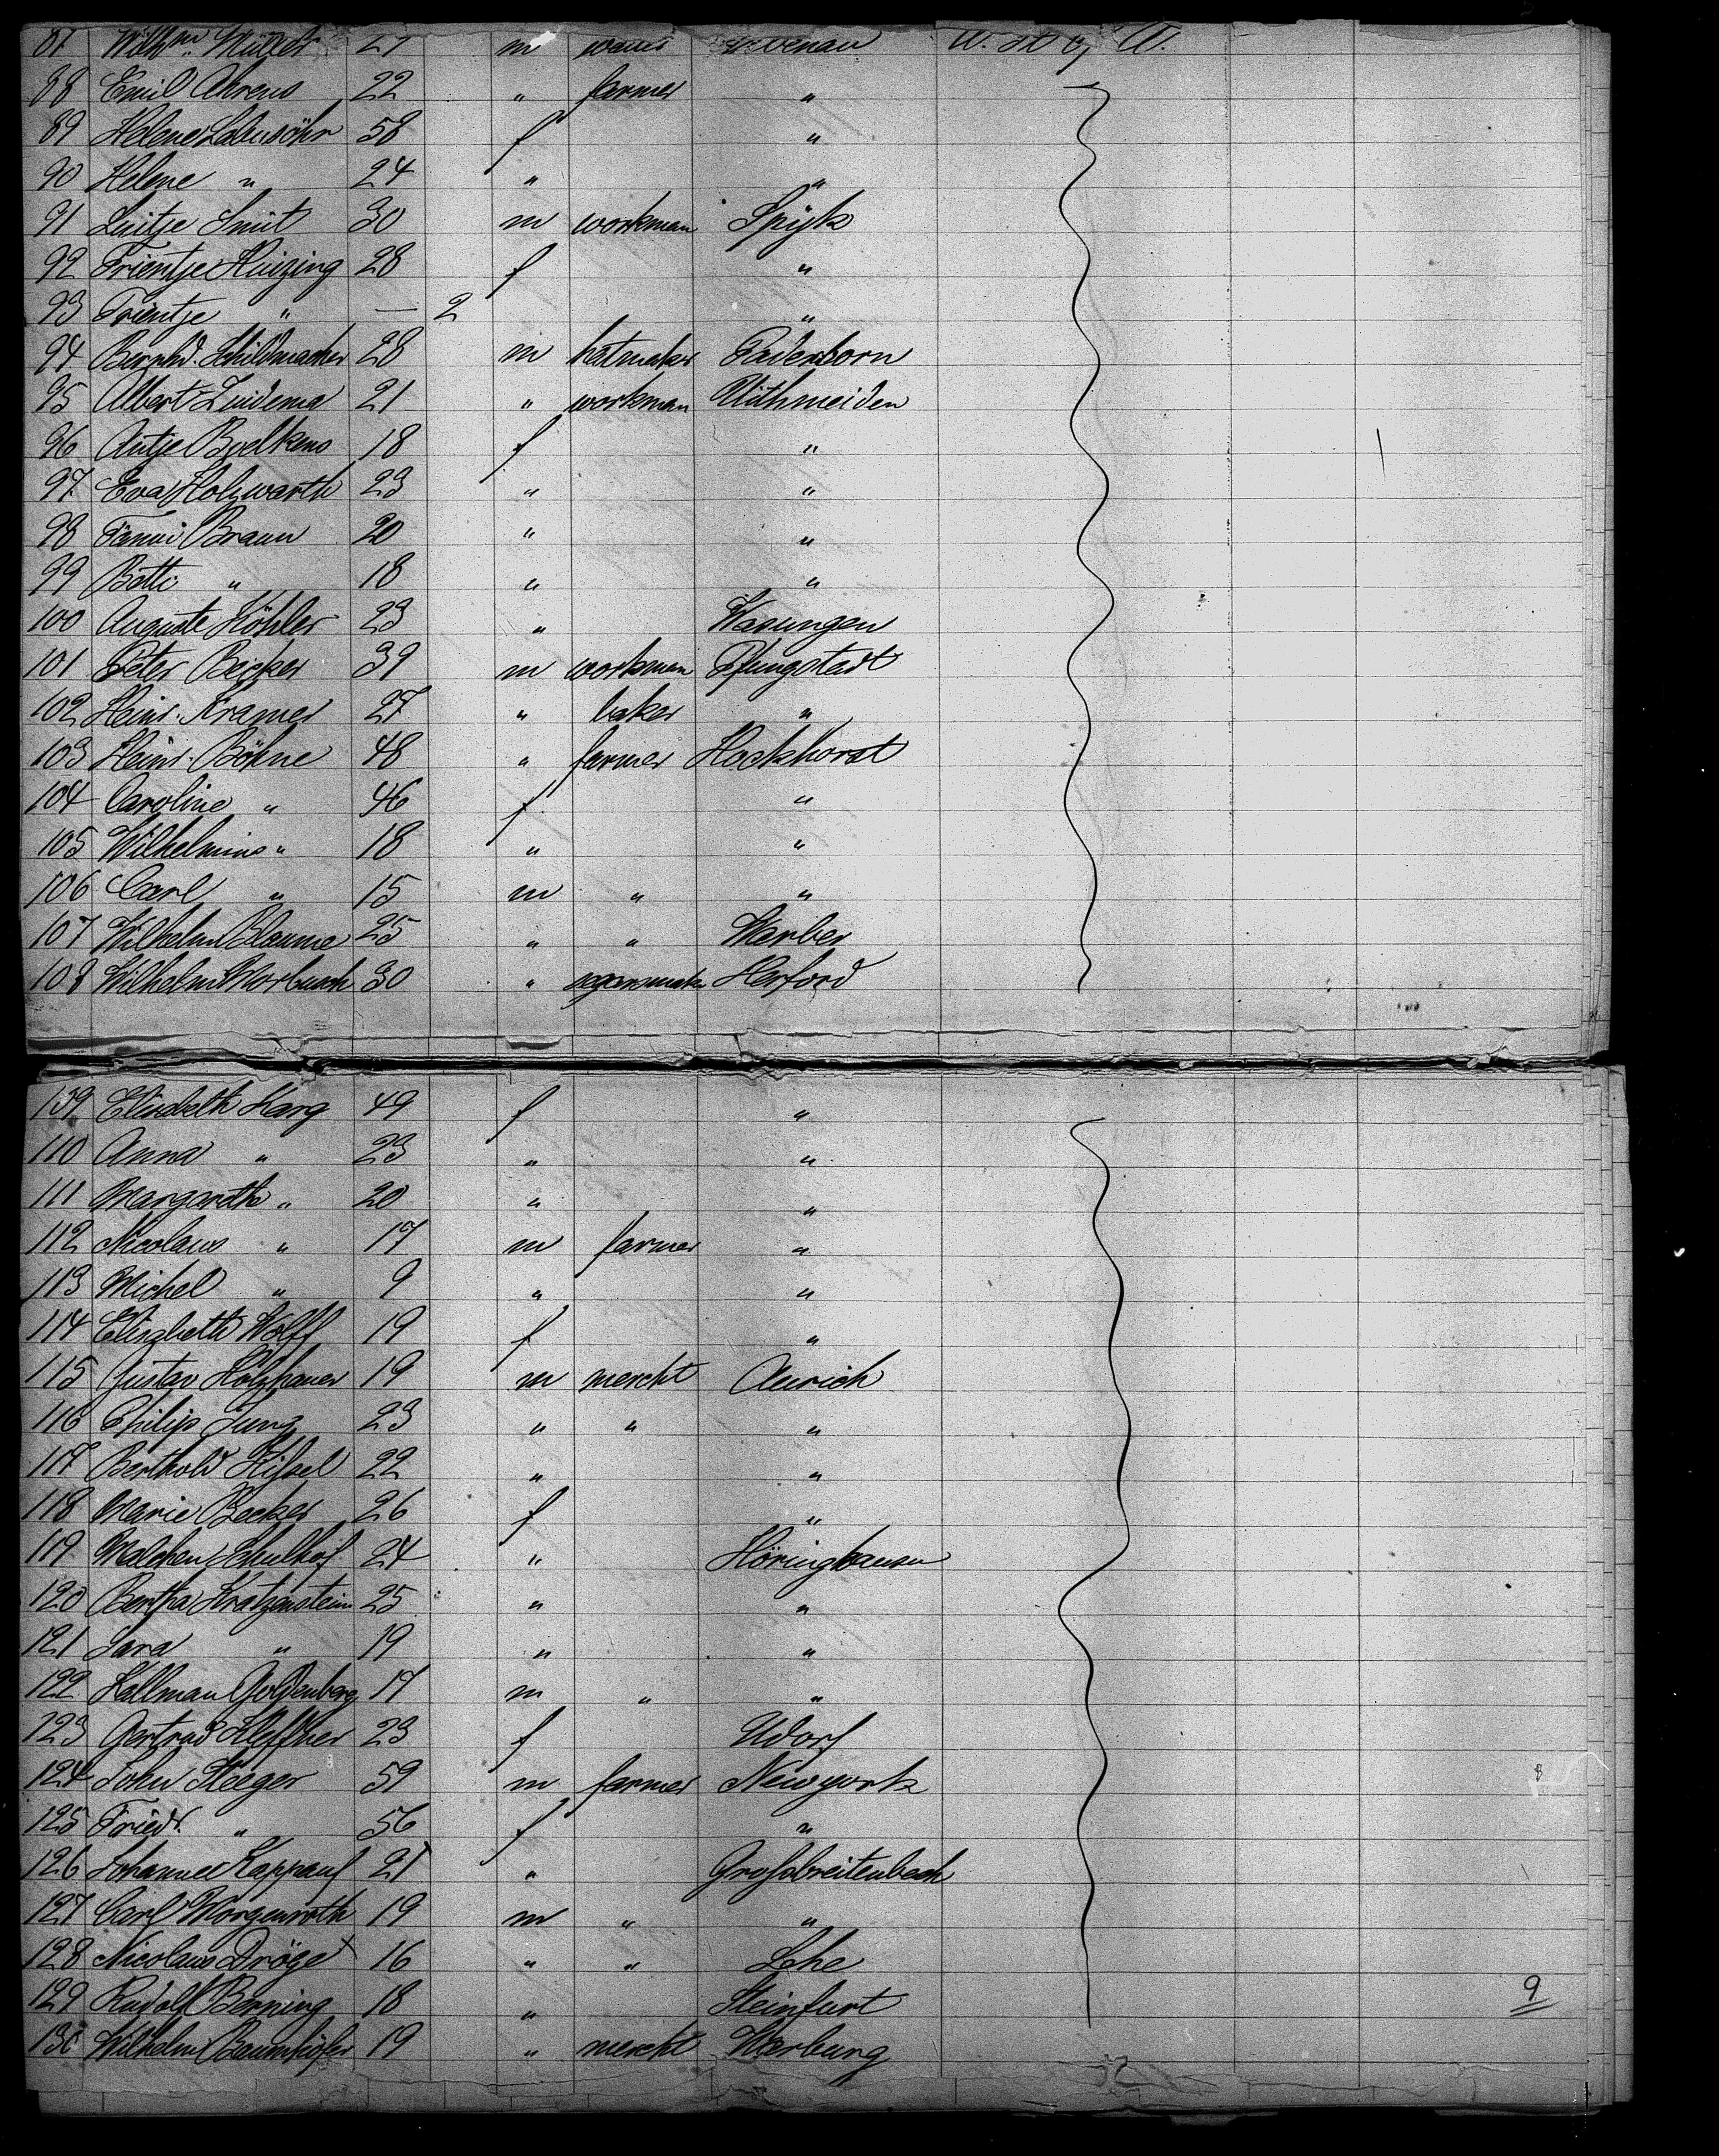 87 Wilhm. Müller 27 m U. St. of A.
88 Emil Ahrens 22 " farmer "
89 Helene Labusöhr 58 f "
90 Helene " 24 " "
91 Luitje Smit 30 m workman Spijk
92 Trientje Huizing 28 f "
93 Trientje " — 2 "
94 Bernhd. Schildmacher 28 m hatmaker Paderborn
95 Albert Zuidema 21 " workman Uithmeiden
96 Antje Buelkens 18 f "
97 Eva Holzwarth 23 " "
98 Fanni Braun 20 " "
99 Betti " 18 " "
100 Auguste Köhler 23 " Wasungen
101 Peter Becker 39 m workman Pfungstadt
102 Heinr. Kramer 27 " baker "
103 Heinr. Böhne 48 " farmer Hockhorst
104 Caroline " 46 f "
105 Wilhelmine " 18 " "
106 Carl " 15 m " "
107 Wilhelm Blaume 25 " " Werber
108 Wilhelm Morbusch 30 " segarmaker Herford
109 Elisabeth Karg 49 f "
110 Anna " 23 " "
111 Margareth " 20 " "
112 Nicolaus " 17 m farmer "
113 Michel " 9 " "
114 Elisabeth Wolff 19 f "
115 Gustav Holzhauer 19 m mercht Aurich
116 Philip Jung 23 " " "
117 Berthold Kissel 22 " "
118 Marie Becker 26 f "
119 Malchen Schulhof 24 " Höringhausen
120 Bertha Kratzenstein 25 " "
121 Sara " 19 " "
122 Kallman Goldenberg 17 m " "
123 Gertrud Kleffner 23 f Udorf
124 John Steeger 59 m farmer Newyork
125 Friedr. " 56 f "
126 Johannee Kappauf 21 " Grossbreitenbach
127 Carl Morgenroth 19 m " "
128 Nicolaus Dröge 16 " " Lehe
129 Rudolf Berning 18 " Steinfurt 9
130 Wilhelm Baumhöfer 19 " mercht Warburg